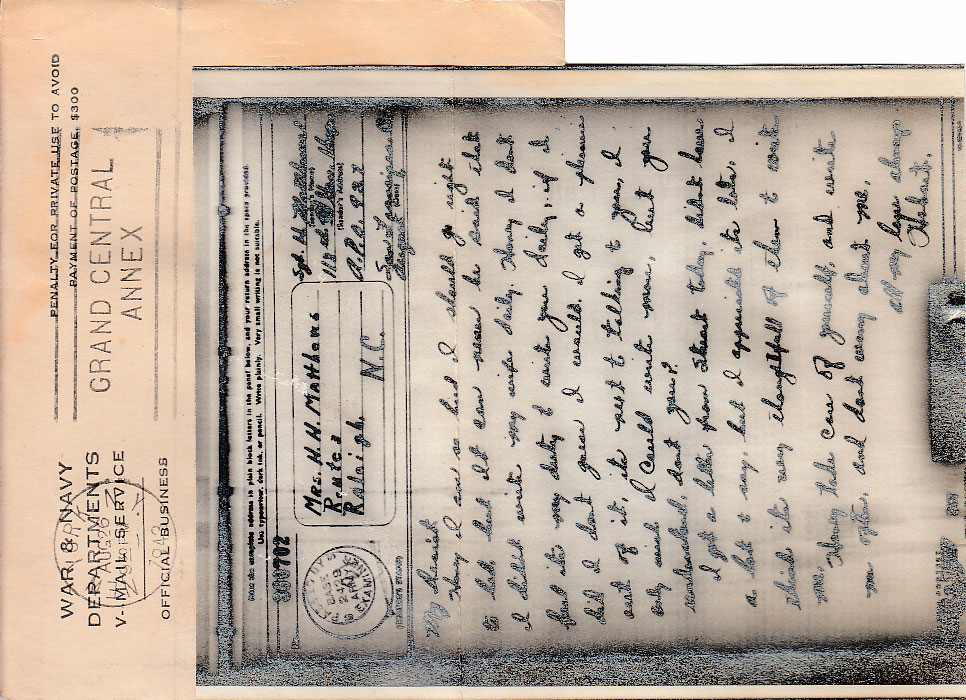 PENALTY FOR PRIVATE USE TO AVOID
PAYMENT OF POSTAGE, $300
GRAND CENTRAL
ANNEX
WAR & NAVY
DEPARTMENTS
V-MAIL SERVICE
OFFICIAL BUSINESS
AUG 26
1942
Print the complete address in plain block letters in the panel below, and your return address in the space provided.
Use typewriter, dark ink, or pencil. Write plainly. Very small writing is not suitable.
Mrs. H. H. Matthews
Route 2
Raleigh
N.C.
Sgt. H. H. Matthews
(Sender's Name)
(Sender's Address)
A.P.O. 887
(CENSOR'S STAMP)
My Dearest
Honey I am so tired I should go right
to bed but it can never be said that
I didn't write my wife daily. Honey I don't
feel its my duty to write you daily, if I
did I don't guess I would. I get a pleasure
out of it, its next to talking to you, I
only wish I could write more, but you
understand, don't you?
I got a letter from Stuart today, didn't have
a lot to say, but I appreciate its lots. I
think its very thoughtful of them to write
me.
Honey take care of yourself, and write
me often, and don't worry about me.
All my love always
Hubert.